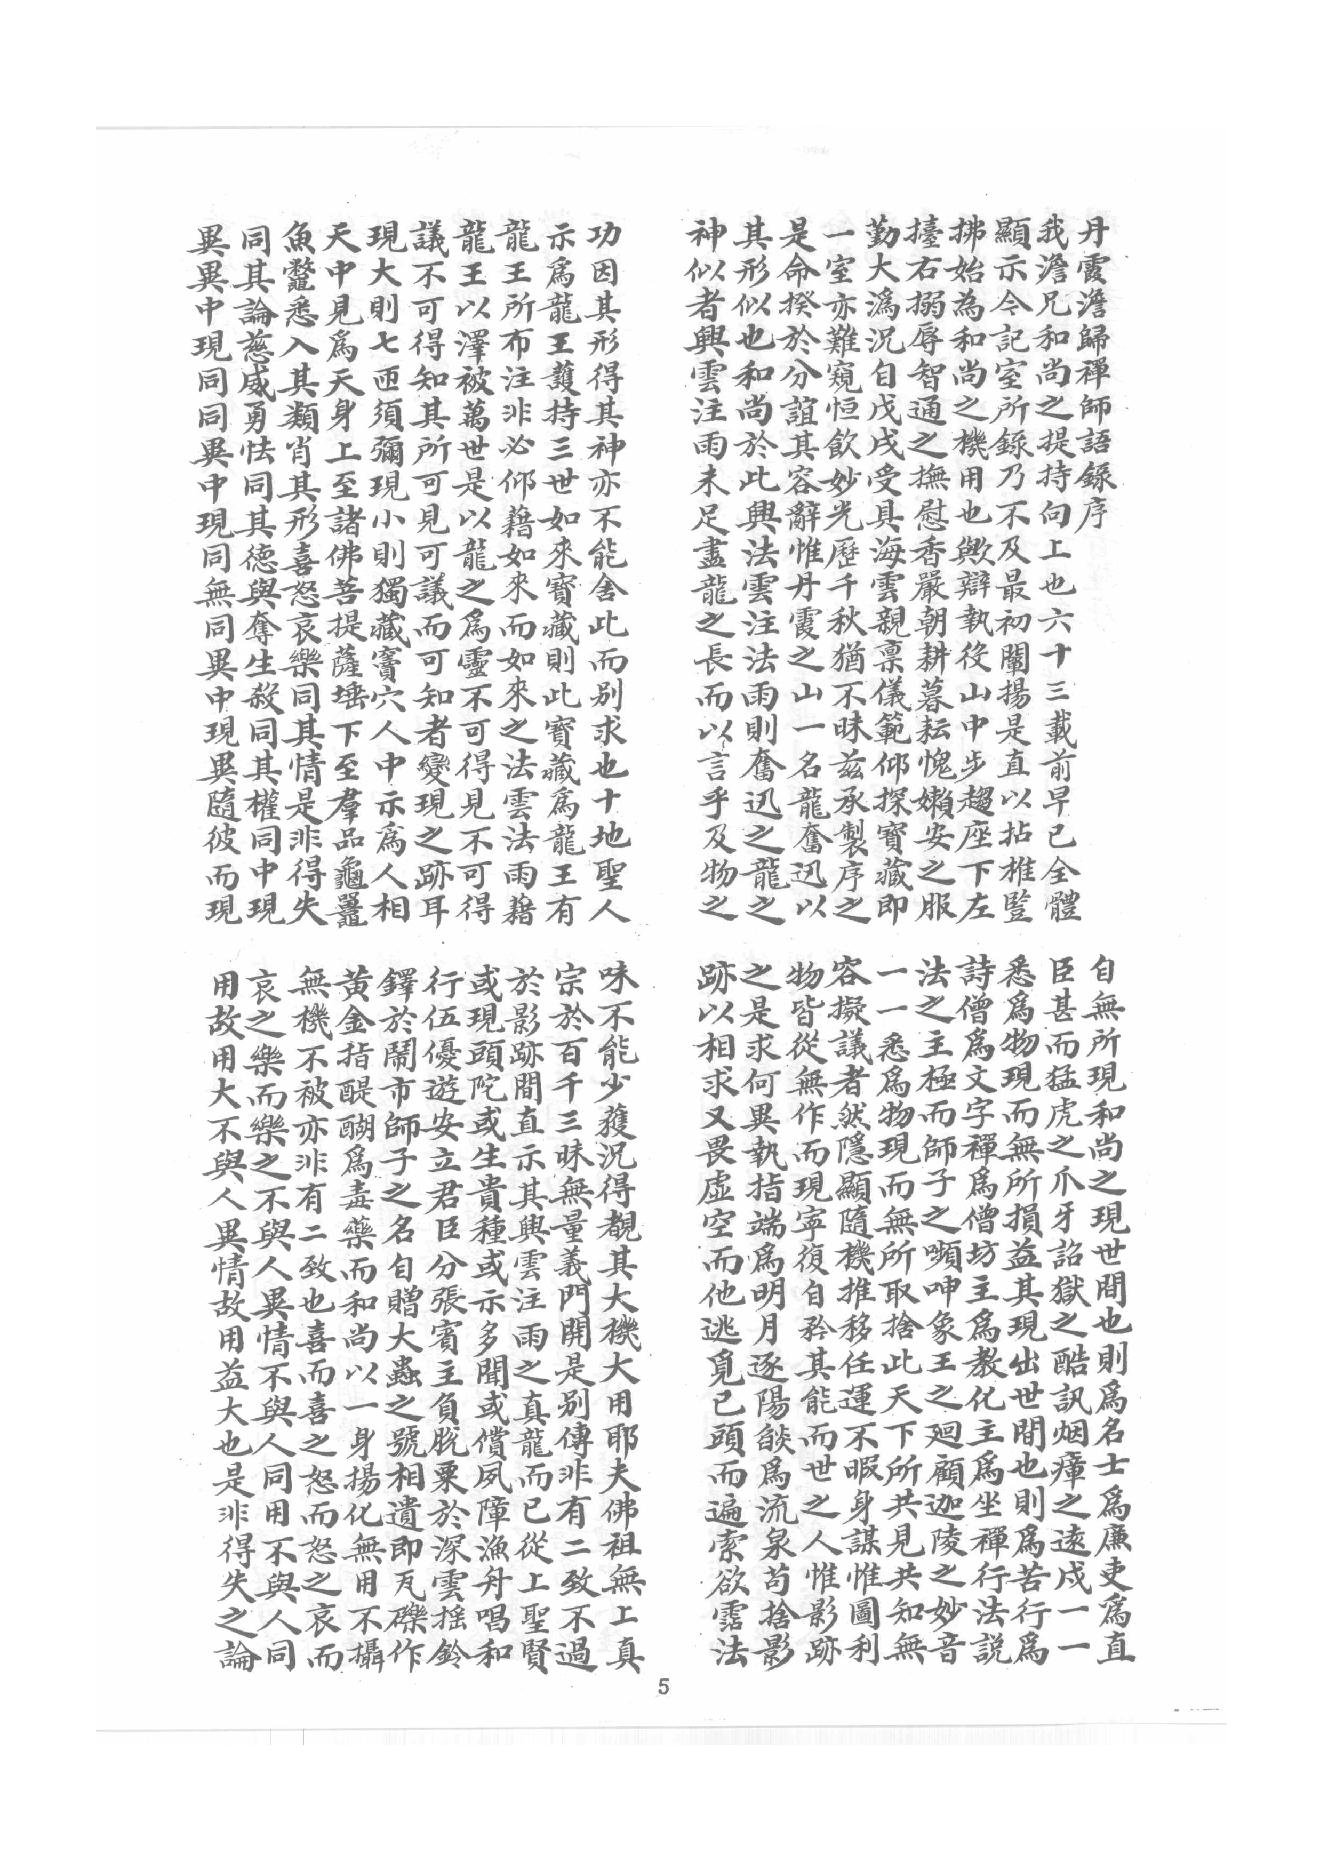 丹霞澹歸禪師語錄序
我澹兄和尚之提持向上也六十三載前早已全體
顯示令記室所錄乃不及最初闡揚是直以拈椎豎
拂始為和尚之機用也歟辯執役山中步趨座下左
擡右搦辱智通之撫慰香嚴朝耕暮耘愧嬾安之服
勤大溈況自戊戌受具海雲親禀儀範仰探寶藏即
一室亦難窺恒飲妙光歷千秋猶不昧兹承製序之
是命揆於分誼其容辭惟丹霞之山一名龍奮迅以
其形似也和尚於此興法雲注法雨則奮迅之龍之
神似者興雲注雨未足盡龍之長而以言乎及物之
功因其形得其神亦不能舍此而别求也十地聖人
示爲龍王護持三世如來寶藏則此寶藏爲龍王有
龍王所布注非必仰藉如來而如來之法雲法雨藉
龍王以澤被萬世是以龍之爲靈不可得見不可得
議不可得知其所可見可議而可知者變現之跡耳
現大則七匝須彌現小則獨藏竇穴人中示爲人相
天中見爲天身上至諸佛菩提薩埵下至羣品龜鼉
魚鼈悉入其類肖其形喜怒哀樂同其情是非得失
同其論慈威勇怯同其德與奪生殺同其權同中現
異異中現同同異中現同無同異中現異隨彼而現
自無所現和尚之現世間也則爲名士爲廉吏爲直
臣甚而猛虎之爪牙詔獄之酷訊烟瘴之遠戍一一
悉爲物現而無所損益其現出世間也則爲苦行爲
詩僧爲文字禪爲僧坊主爲教化主爲坐禪行法說
法之主極而師子之嚬呻象王之廻顧迦陵之妙音
一一悉爲物現而無所取捨此天下所共見共知無
容擬議者然隱顯隨機推移任運不暇身謀惟圖利
物皆從無作而現寧復自矜其能而世之人惟影跡
之是求何異執指端爲明月逐陽燄爲流泉苟捨影
跡以相求又畏虛空而他逃覓已頭而遍索欲霑法
味不能少獲況得覩其大機大用耶夫佛祖無上真
宗於百千三昧無量義門開是别傳非有二致不過
於影跡間直示其興雲注雨之真龍而已從上聖賢
或現頭陀或生貴種或示多聞或償夙障漁舟唱和
行伍優遊安立君臣分張賓主負脫粟於深雲搖鈴
鐸於鬧市師子之名自贈大蟲之號相遺即瓦礫作
黃金指醍醐爲毒藥而和尚以一身揚化無用不攝
無機不被亦非有二致也喜而喜之怒而怒之哀而
哀之樂而樂之不與人異情不與人同用不與人同
用故用大不與人異情故用益大也是非得失之論
5